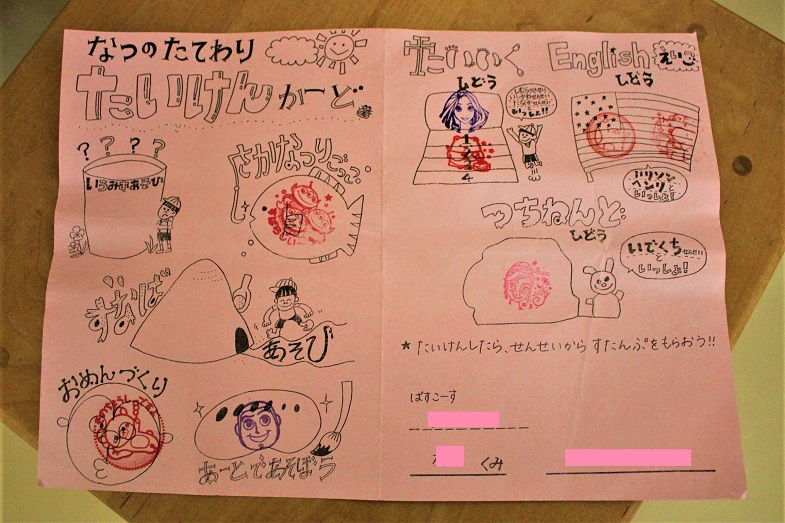 なつのたてわり
たいけんかーど
? ? ? ?
いろみずあそび
さかなつりごっこ
すなば
あそび
おめんづくり
あーとであそぼう
たいいく
しどう
いっしょ!!
1
2
3
4
English えいご
しどう
いっしょ!
つちねんど
しどう
いでぐちせんせい
と
いっしょ!
★たいけんしたら、せんせいからすたんぷをもらおう!!
ばすこーす
くみ